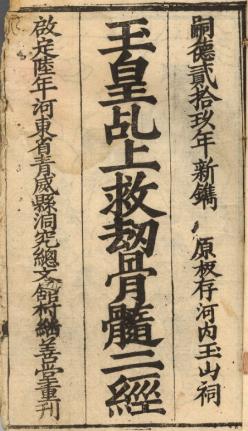 嗣德貳拾玖年新鐫 原板存河內玉山祠
玉皇乩上救刼骨髓二經
啟定陸年河東省青威縣洞究總文舘村善堂重刊